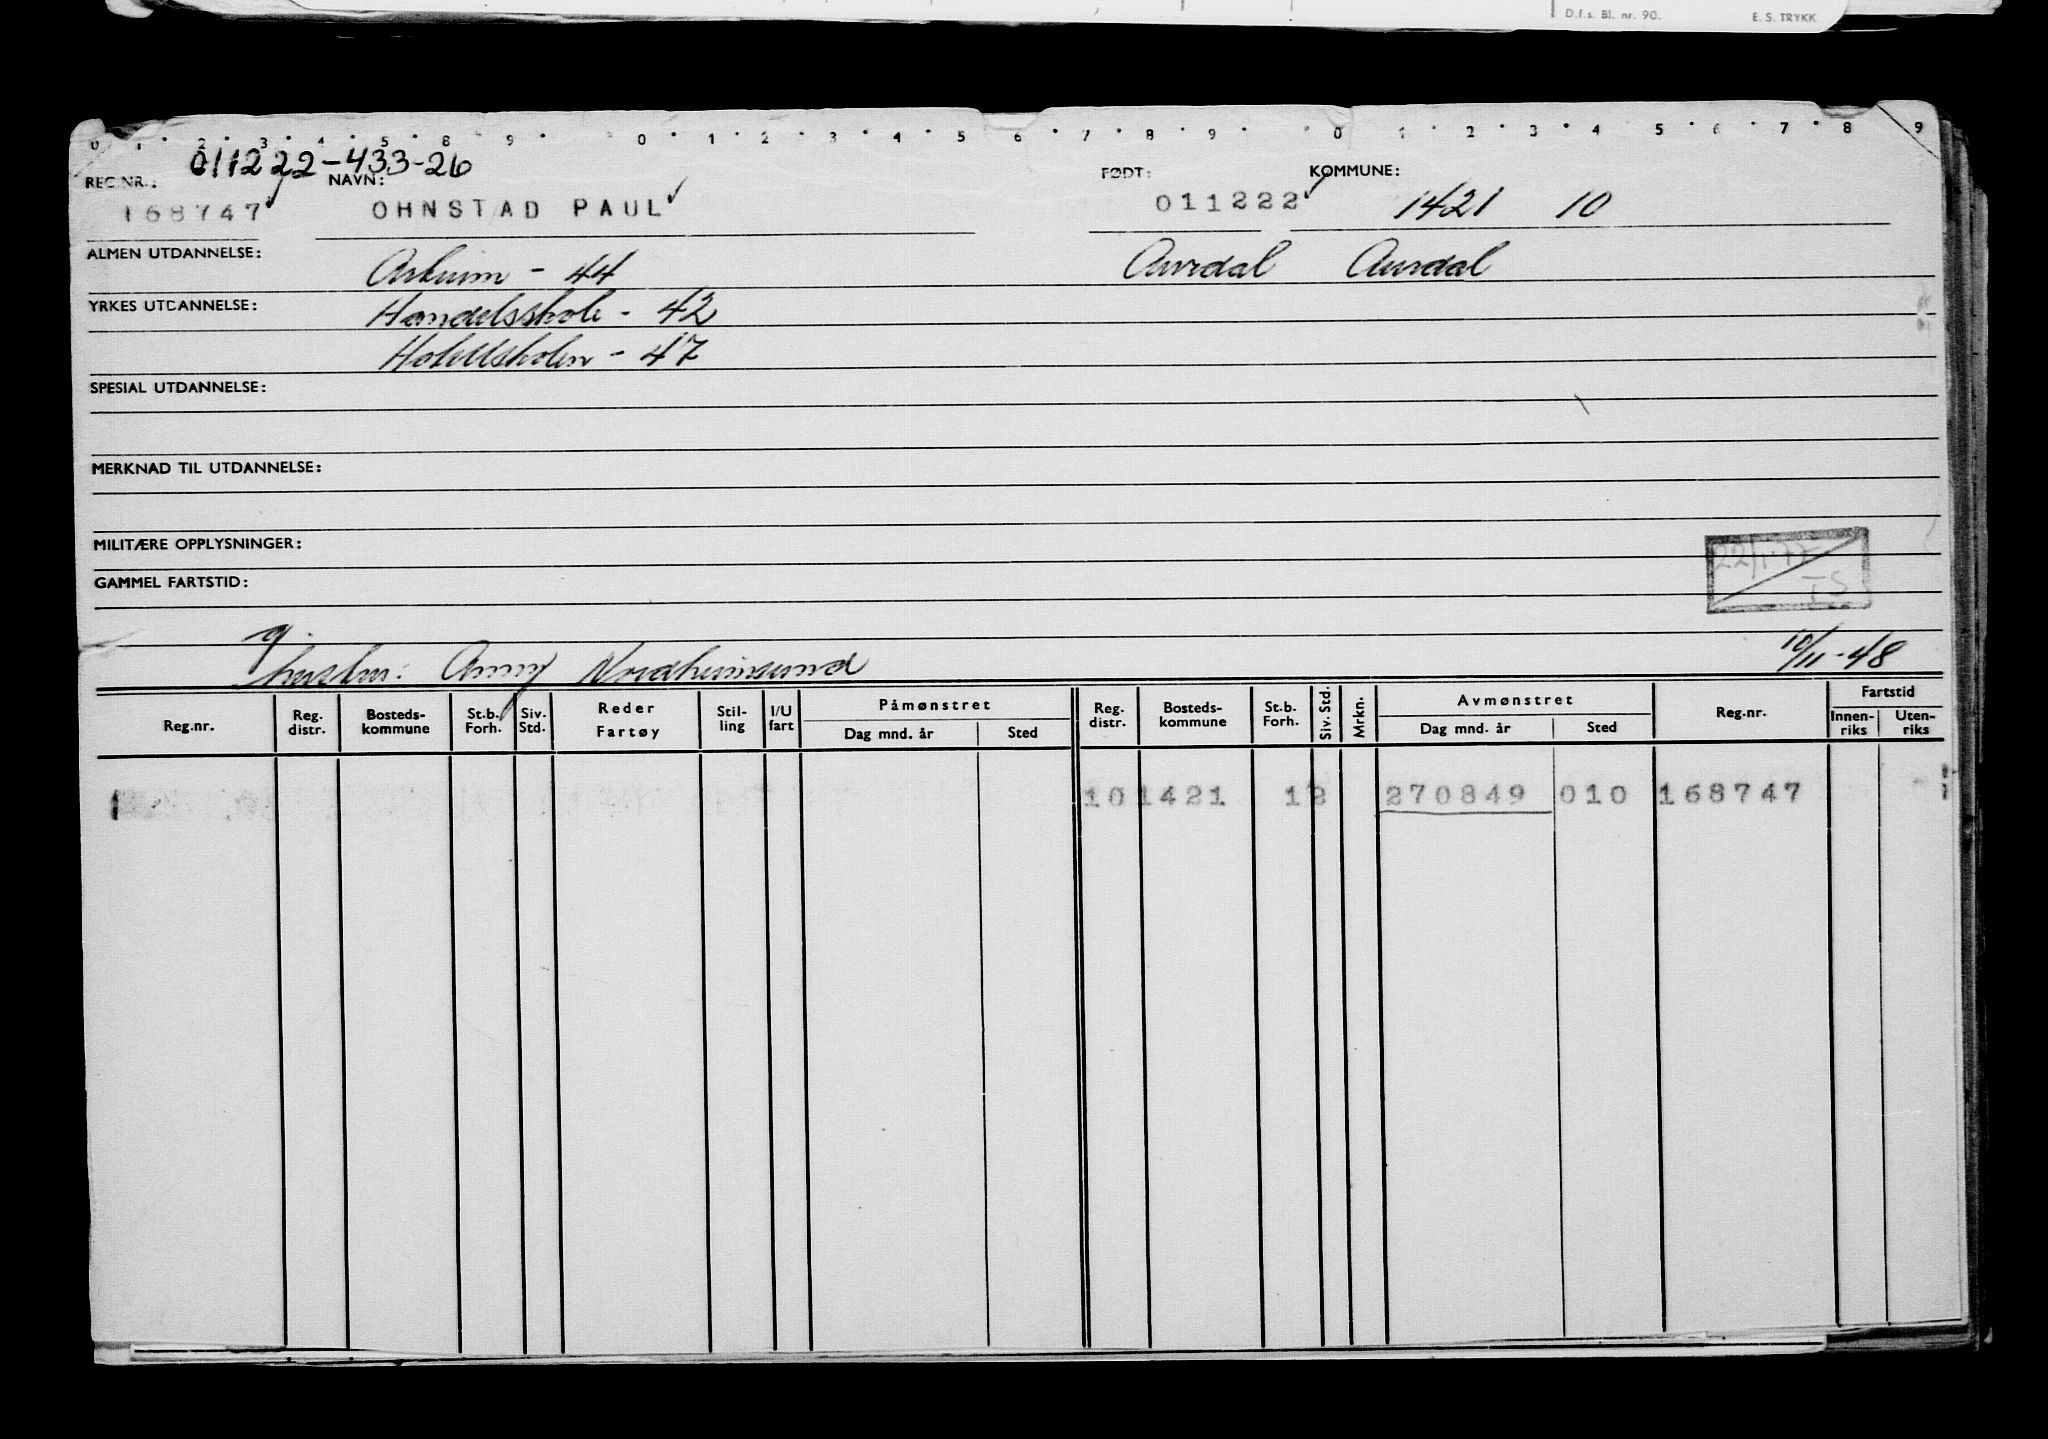 D.f.s. Bl. nr. 90. E. S. TRYKK
0 1 2 3 4 5 8 9 0 1 2 3 4 5 6 7 8 9 0 1 2 3 4 5 6 7 8 9
011222-433-26
REG.NR.: NAVN: FØDT: KOMMUNE:
168747 OHNSTAD PAUL 011222 1421 10
ALMEN UTDANNELSE: - 44 Aurdal Aurdal
YRKES UTDANNELSE: Handelsskole - 42
Hotellskolen - 47
SPESIAL UTDANNELSE:
MERKNAD TIL UTDANNELSE:
MILITÆRE OPPLYSNINGER:
22/1-77
GAMMEL FARTSTID:
TS
g.
10/11-48
hustru: Anny Nordheimsund
Reg.nr. Reg. distr. Bosteds-kommune St.b. Forh. Siv. Std. Reder Fartøy Stil-ling I/U fart Påmønstret Dag mnd. år Sted Reg. distr. Bosteds-kommune St.b. Forh. Siv. Std. Mrkn. Avmønstret Dag mnd. år Sted Reg.nr. Fartstid Innen-riks Uten-riks
10 1421 12 270849 010 168747